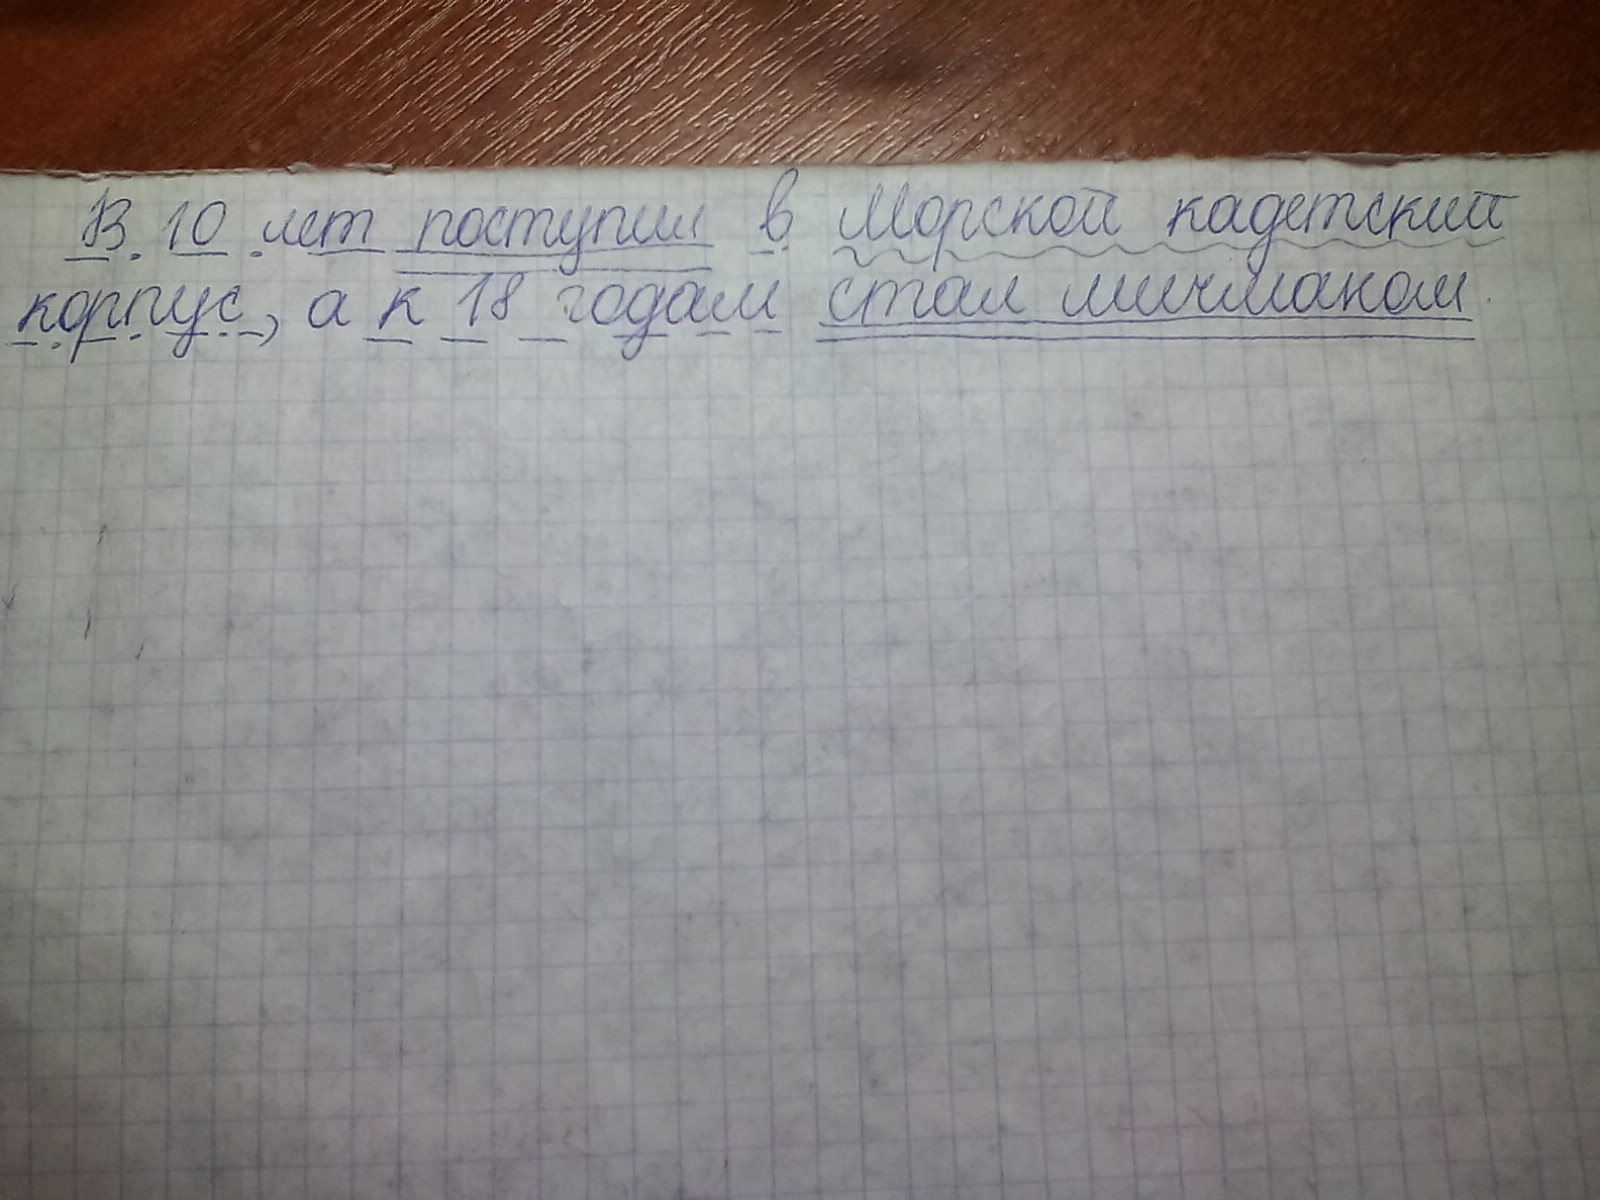 В 10 лет поступил в Морской кадетский
корпус, а к 18 годам стал мичманом.